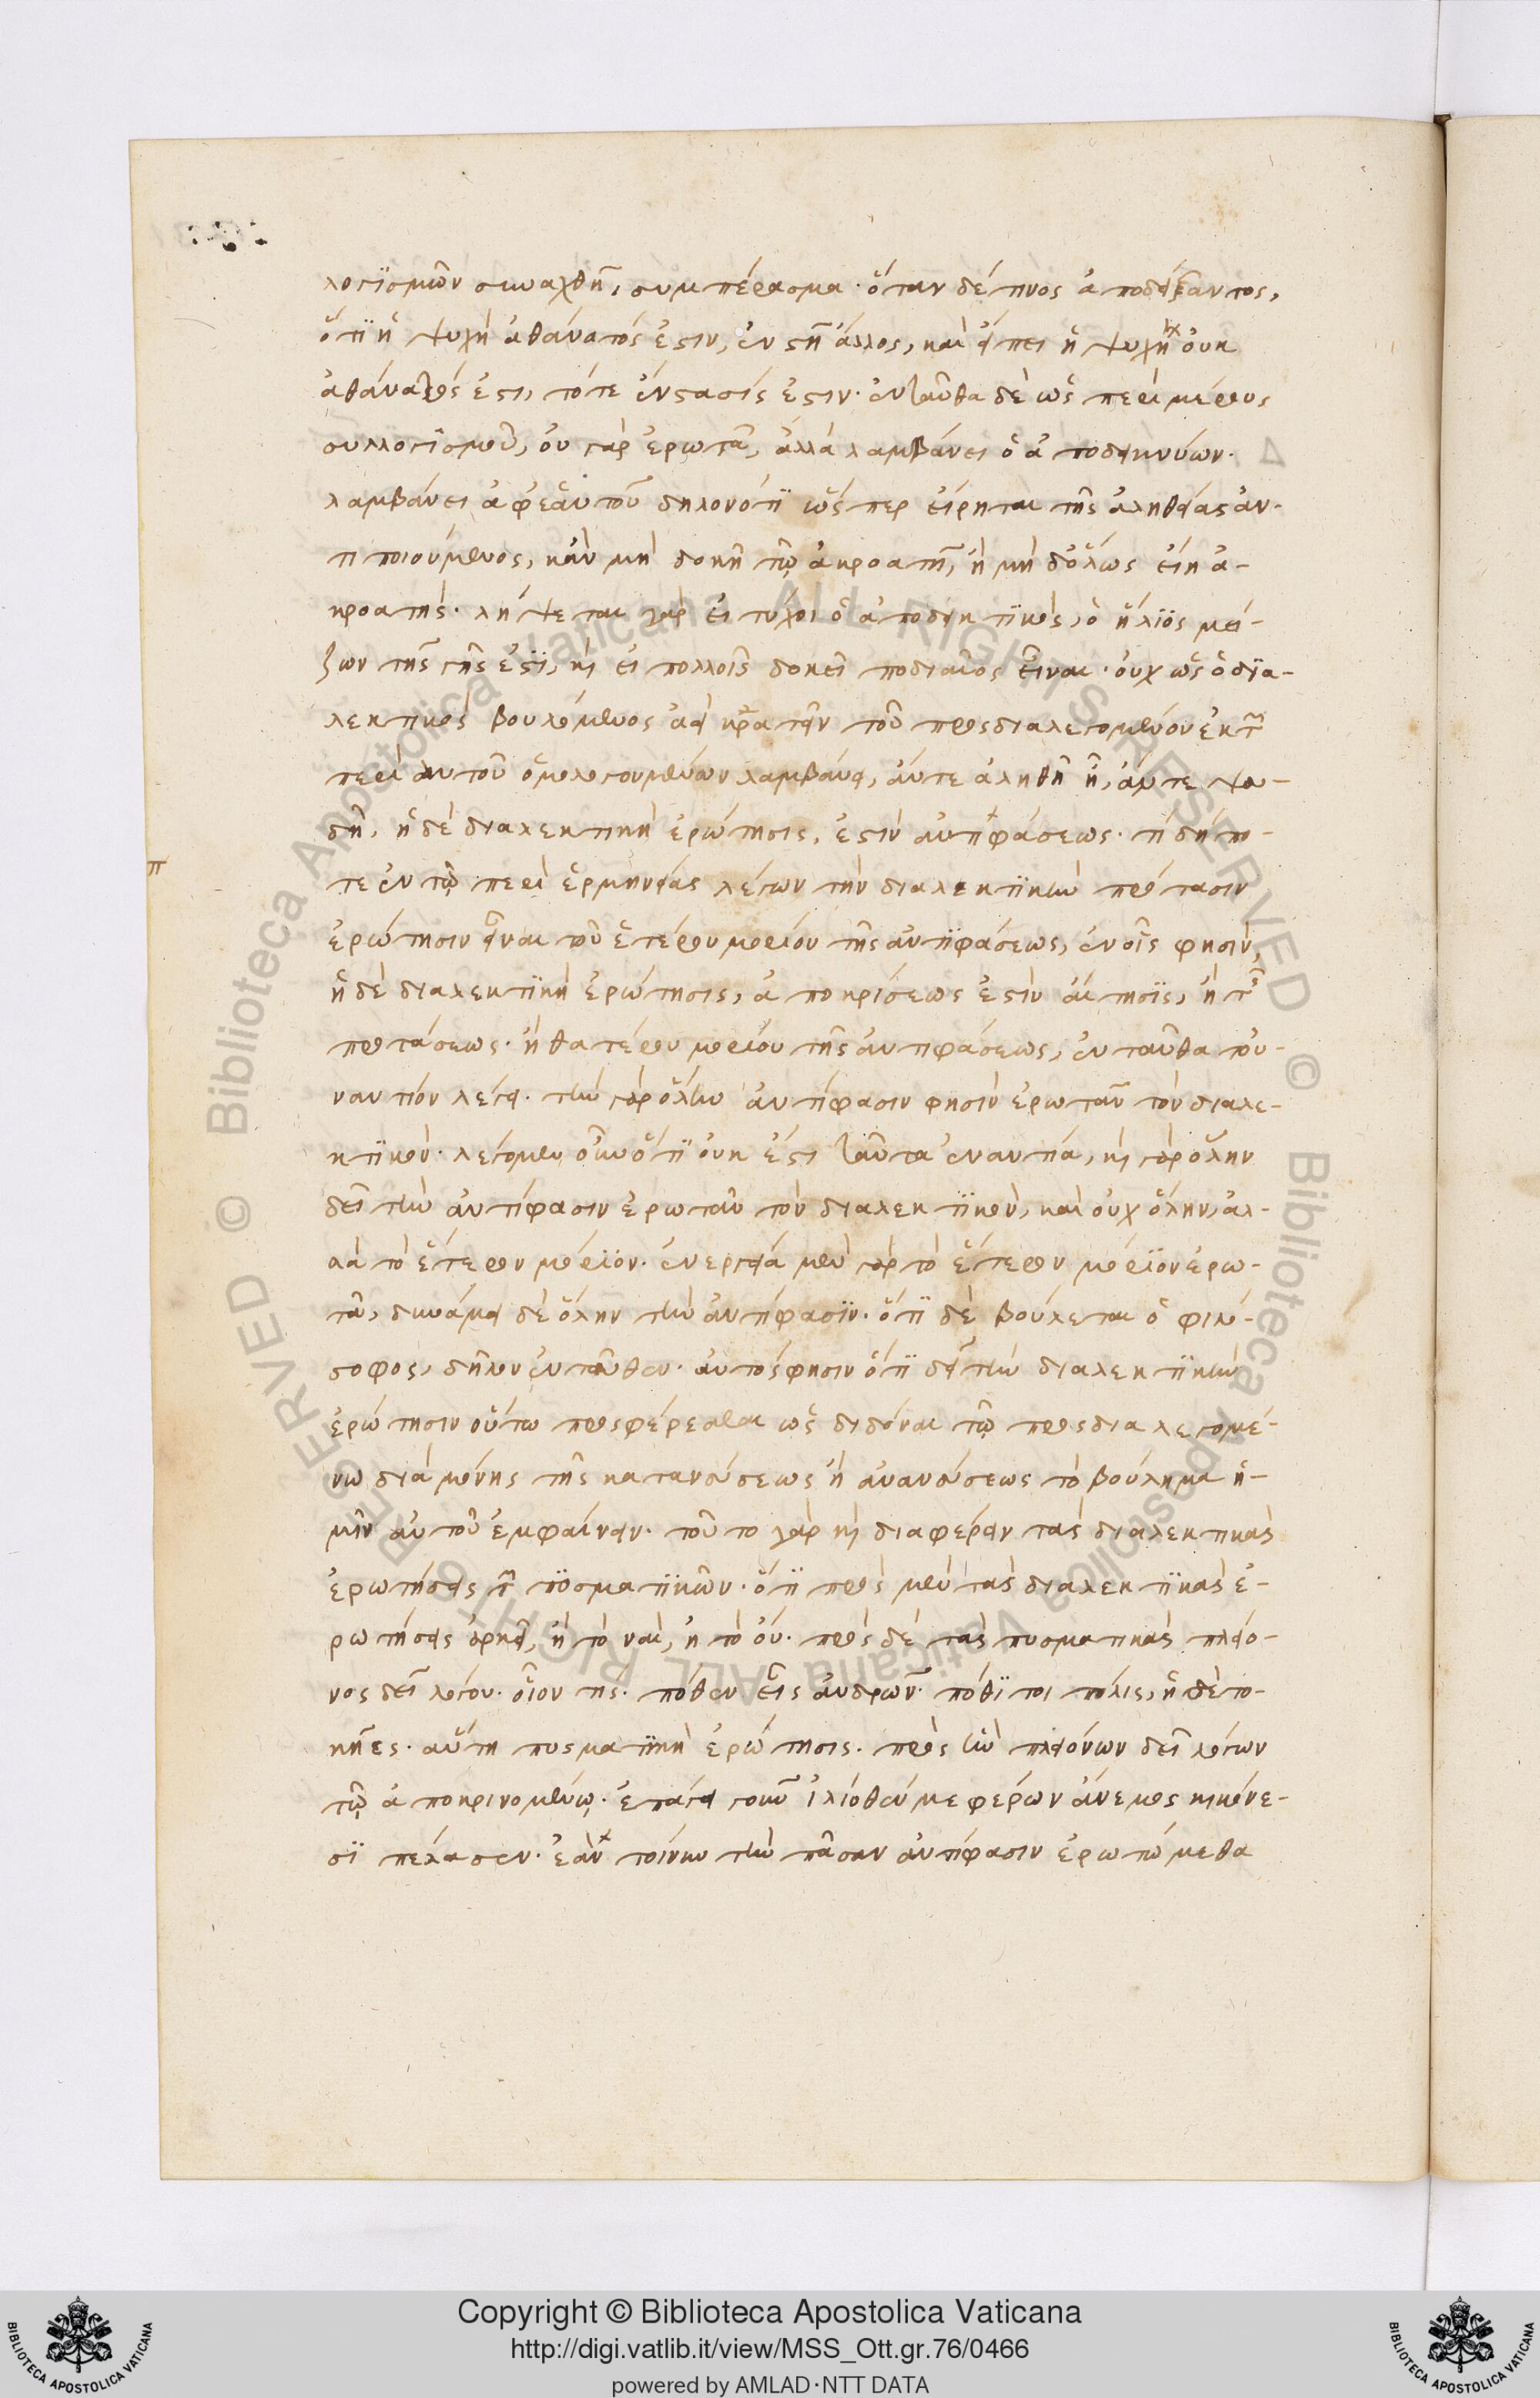 λογϊσμῶν συναχθῆ, συμπέρασμα· ὅταν δέ τινος ἀποδείξαντος,
ὅτϊ ἡ ψυχὴ ἀθάνατός ἐστιν, ἐνστῆ ἄλλος, καὶ εἴπει ἡ ψυχὴ οὐκ
ἀθάνατός ἐστι, τότε ἔνστασίς ἐστιν· ἐνταῦθα δὲ ὡς περὶ μέρους
συλλογϊσμοῦ, οὐ γὰρ ἐρωτᾶ, ἀλλὰ λαμβάνει ὁ ἀποδεικνύων·
λαμβάνει ἀφ' ἑαυτοῦ δηλονότϊ ὥς περ εἴρηται τῆς ἀληθείας ἀν-
τιποιούμενος, κἂν μὴ δοκῆ τῷ ἀκροατῆ, ἢ μηδ' ὅλως εἴη ἀ-
κροατής· λήψεται γὰρ εἰ τύχοι ὁ ἀποδεικτϊκὸς, ὁ ἥλϊός μεί-
ζων τῆς γῆς ἐστϊ, καὶ εἰ πολλοῖς δοκεῖ ποδιαῖος εἶναι· οὐχ ὡς ὁ δϊα-
λεκτικὸς βουλόμενος ἀεὶ κρατεῖν τοῦ προσδιαλεγομένου ἐκ τῶν
περὶ αὐτοῦ ὁμολογουμένων λαμβάνει, ἄν τε ἀληθῆ ἦ, ἄν τε ψευ-
δῆ, ἡ δὲ διαλεκτικὴ ἐρώτησις, ἐστὶν ἀντιφάσεως· τί δή πο-
τε ἐν τῷ περὶ ἑρμηνείας λέγων τὴν διαλεκτϊκὴν πρότασιν
ἐρώτησιν εἶναι τοῦ ἑτέρου μορίου τῆς ἀντϊφάσεως, ἐν οἷς φησὶν,
ἡ δὲ διαλεκτϊκὴ ἐρώτησις, ἀποκρίσεως ἐστὶν αἴτησϊς, ἢ τῆς
προτάσεως· ἢ θατέρου μορίου τῆς ἀντιφάσεως, ἐνταῦθα τοὐ-
ναντίον λέγει· τὴν γὰρ ὅλην ἀντίφασιν φησὶν ἐρωτᾶν τὸν διαλε-
κτϊκόν· λέγομεν οὖν ὅτϊ οὐκ ἔστι ταῦτα ἐναντία, καὶ γὰρ ὅλην
δεῖ τὴν ἀντίφασιν ἐρωτᾶν τὸν διαλεκτϊκὸν, καὶ οὐχ ὅλην, ἀλ-
λὰ τὸ ἕτερον μόρϊον· ἐνεργεία μὲν γὰρ τὸ ἕτερον μόρϊον ἐρω-
τᾶ, δυνάμει δὲ ὅλην τὴν ἀντίφασϊν· ὅτϊ δὲ βούλεται ὁ φιλό-
σοφος, δῆλον ἐντεῦθεν· αὐτός φησιν ὅτϊ δεῖ τὴν διαλεκτϊκὴν
ἐρώτησιν οὕτω προσφέρεσθαι ὡς διδόναι τῷ προσδιαλεγομέ-
νω διὰ μόνης τῆς κατανεύσεως ἢ ἀνανεύσεως τὸ βούλημα ἡ-
μῖν αὐτοῦ ἐμφαίνειν· τοῦτο γὰρ καὶ διαφέρειν τὰς διαλεκτικὰς
ἐρωτήσεις τῶν πϋσματϊκῶν· ὅτϊ πρὸς μὲν τὰς διαλεκτϊκὰς ἐ-
ρωτήσεις ἀρκεῖ, ἢ τὸ ναὶ, ἢ τὸ οὔ· πρὸς δὲ τὰς πυσματικὰς πλείο-
νος δεῖ λόγου· οἷον τίς· πόθεν εἶς ἀνδρῶν· πόθϊ τοι πόλις, ἠδὲ το-
κῆες· αὕτη πυσματϊκὴ ἐρώτησις· πρὸς ἣν πλειόνων δεῖ λόγων
τῷ ἀποκρινομένῳ· ἐπάγει γοῦν ἰλιόθεν με φέρων ἄνεμος κικόνε-
σϊ πέλασεν· ἐὰν τοίνυν τὴν πᾶσαν ἀντίφασιν ἐρωτώμεθα
π
Copyright © Biblioteca Apostolica Vaticana
http://digi.vatlib.it/view/MSS_Ott.gr.76/0466
powered by AMLAD·NTT DATA
BIBLIOTECA APOSTOLICA VATICANA
BIBLIOTECA APOSTOLICA VATICANA
© Biblioteca Apostolica Vaticana ALL RIGHTS RESERVED © Biblioteca Apostolica Vaticana ALL RIGHTS RESERVED